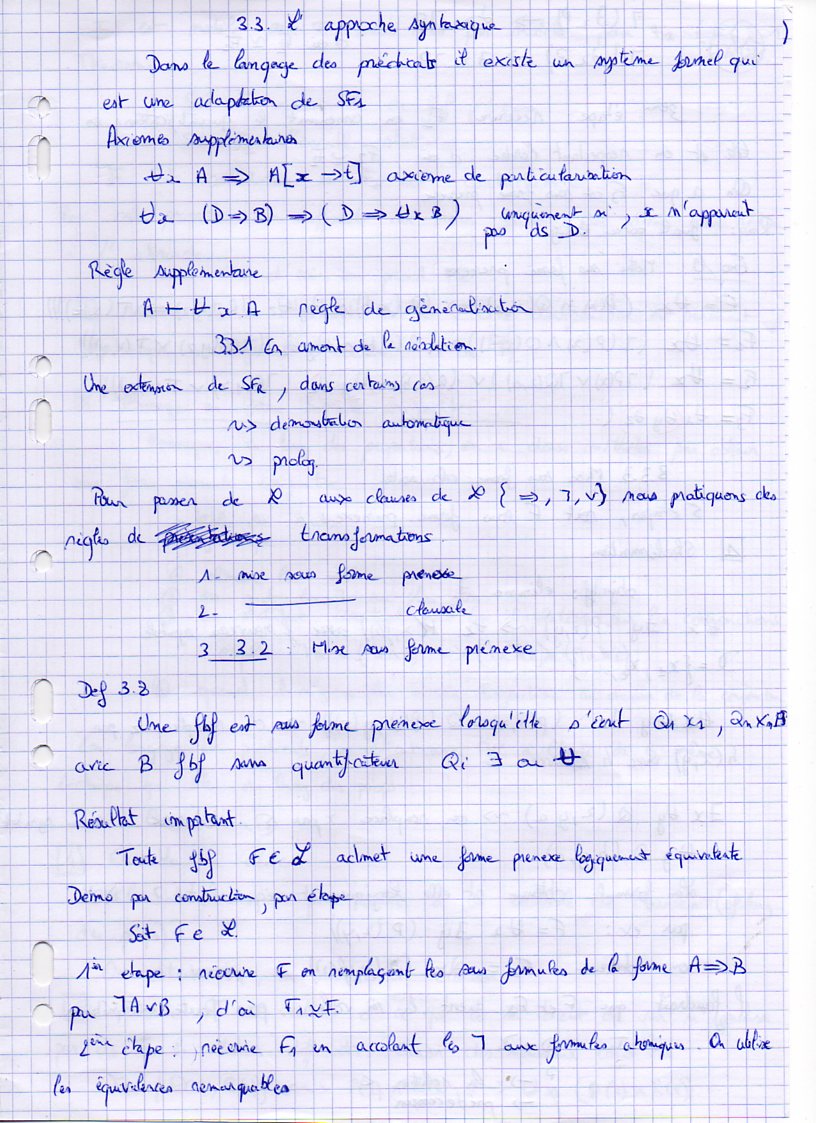 3.3. L' approche syntaxique
Dans le langage des prédicats il existe un système formel qui
est une adaptation de SF1
Axiomes supplémentaires
∀x A ⇒ A[x → t] axiome de particularisation
∀x (D ⇒ B) ⇒ (D ⇒ ∀x B) uniquement si, x n'apparait
pas ds D.
Règle supplémentaire
A ⊢ ∀ x A règle de généralisation
3.3.1 En amont de la résolution.
Une extension de SFR, dans certains cas
~> demonstration automatique
~> prolog.
Pour passer de L aux clauses de L {⇒, ⅂, v} nous pratiquons des
règles de transformations.
1- mise sous forme prenexe
2- ———— clausale
3 3.2. Mise sous forme prénexe
Def 3.8
Une fbf est sous forme prenexe lorsqu'elle s'écrit Q1 x1, Qn Xn B
avec B fbf sans quantificateur Qi ∃ ou ∀
Résultat important.
Toute fbf F ∈ L admet une forme prenexe logiquement équivalente
Demo par construction, par étape
Soit F ∈ L.
1ère etape : réécrire F en remplaçant les sous formules de la forme A ⇒ B
par ⅂A v B, d'où F1 ≃ F.
2ème étape : réécrire F1 en accolant les ⅂ aux formules atomiques. On utilise
les équivalences remarquables